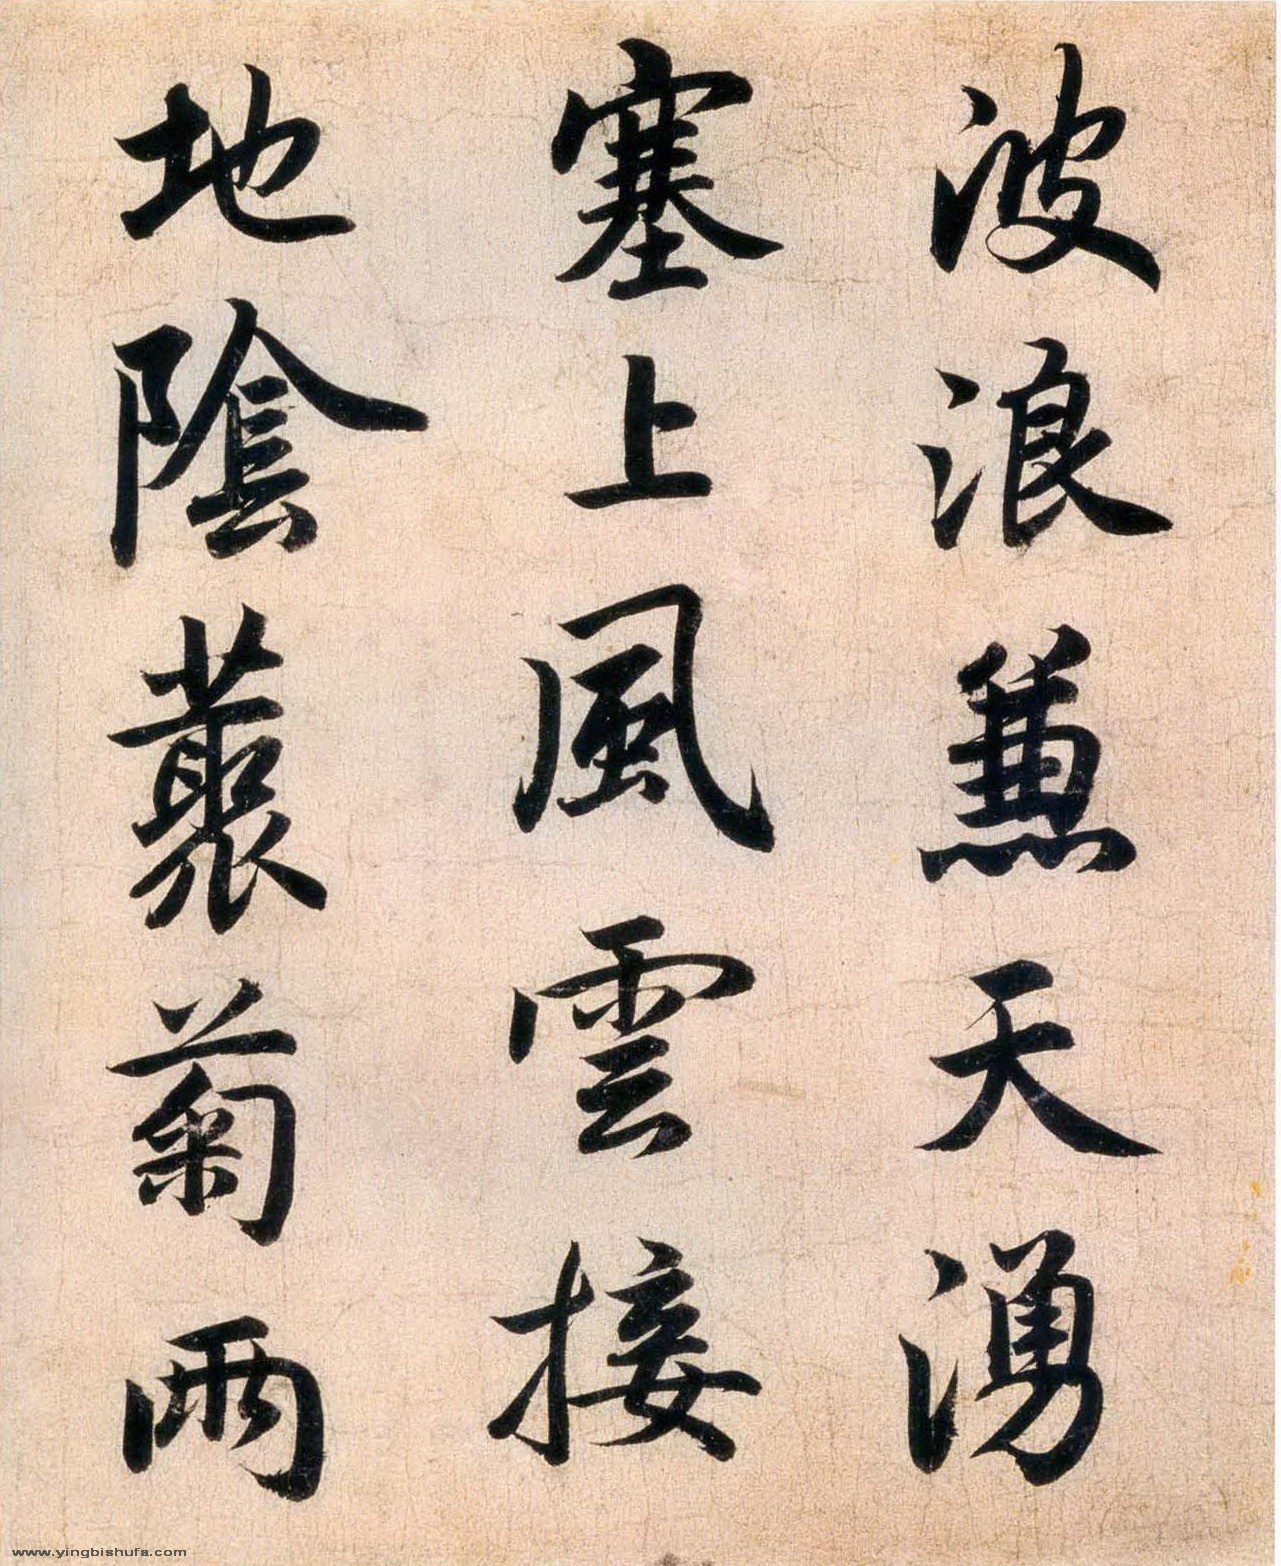 波浪兼天湧
塞上風雲接
地陰叢菊兩
www.yingbishufa.com